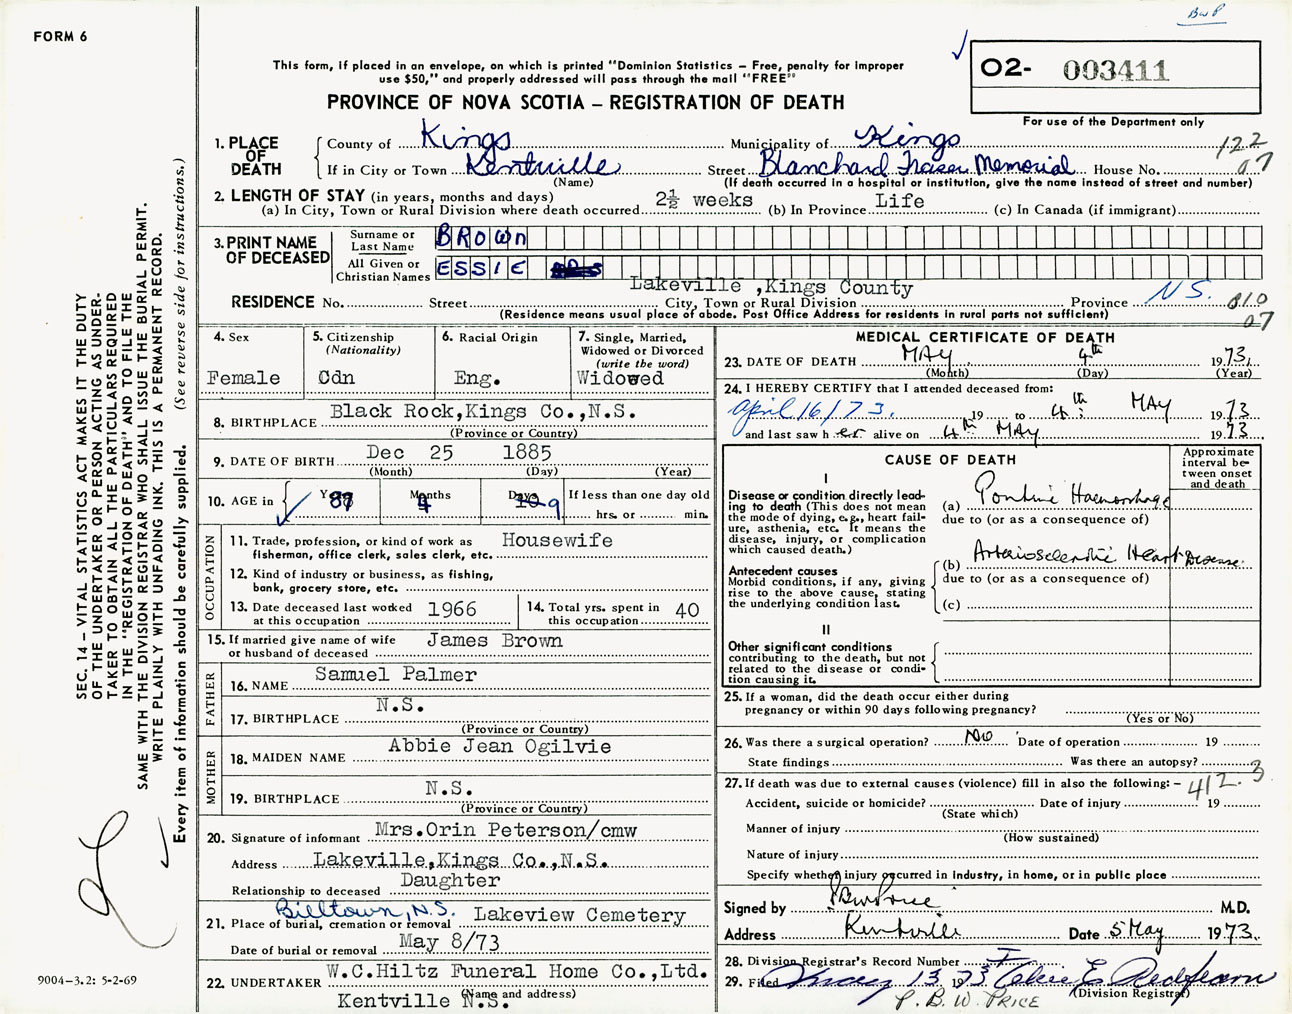 BWP
FORM 6
This form, if placed in an envelope, on which is printed "Dominion Statistics – Free, penalty for improper
use $50," and properly addressed will pass through the mail "FREE"
PROVINCE OF NOVA SCOTIA – REGISTRATION OF DEATH
O2- 003411
For use of the Department only
122
07
1. PLACE OF DEATH
County of Kings Municipality of Kings
If in City or Town Kentville Street Blanchard Fraser Memorial House No.
(Name) (If death occurred in a hospital or institution, give the name instead of street and number)
2. LENGTH OF STAY (in years, months and days)
(a) In City, Town or Rural Division where death occurred 2½ weeks (b) In Province Life (c) In Canada (if immigrant)
3. PRINT NAME OF DECEASED
Surname or Last Name BROWN
All Given or Christian Names ESSIE
RESIDENCE No. Street Lakeville ,Kings County City, Town or Rural Division Province N.S. 810
07
(Residence means usual place of abode. Post Office Address for residents in rural parts not sufficient)
4. Sex Female
5. Citizenship (Nationality) Cdn
6. Racial Origin Eng.
7. Single, Married, Widowed or Divorced (write the word) Widowed
8. BIRTHPLACE Black Rock,Kings Co.,N.S.
(Province or Country)
9. DATE OF BIRTH Dec 25 1885
(Month) (Day) (Year)
10. AGE in Years 87 Months 4 Days 10 9 If less than one day old
hrs. or min.
OCCUPATION
11. Trade, profession, or kind of work as Housewife
fisherman, office clerk, sales clerk, etc.
12. Kind of industry or business, as fishing,
bank, grocery store, etc.
13. Date deceased last worked at this occupation 1966
14. Total yrs. spent in this occupation 40
15. If married give name of wife or husband of deceased James Brown
FATHER
16. NAME Samuel Palmer
17. BIRTHPLACE N.S.
(Province or Country)
MOTHER
18. MAIDEN NAME Abbie Jean Ogilvie
19. BIRTHPLACE N.S.
(Province or Country)
20. Signature of informant Mrs.Orin Peterson/cmw
Address Lakeville,Kings Co.,N.S.
Relationship to deceased Daughter
21. Place of burial, cremation or removal Billtown, N.S. Lakeview Cemetery
Date of burial or removal May 8/73
22. UNDERTAKER W.C.Hiltz Funeral Home Co.,Ltd.
(Name and address)
Kentville N.S.
MEDICAL CERTIFICATE OF DEATH
23. DATE OF DEATH MAY 4th 1973.
(Month) (Day) (Year)
24. I HEREBY CERTIFY that I attended deceased from:
April 16/73. 19 to 4th MAY 1973
and last saw her alive on 4th MAY 1973
CAUSE OF DEATH
Approximate interval between onset and death
I
Disease or condition directly leading to death (This does not mean the mode of dying, e.g., heart failure, asthenia, etc. It means the disease, injury, or complication which caused death.)
(a) Pontine Haemorrhage
due to (or as a consequence of)
Antecedent causes
Morbid conditions, if any, giving rise to the above cause, stating the underlying condition last.
(b) Arteriosclerotic Heart Disease.
due to (or as a consequence of)
(c)
II
Other significant conditions
contributing to the death, but not related to the disease or condition causing it.
25. If a woman, did the death occur either during
pregnancy or within 90 days following pregnancy?
(Yes or No)
26. Was there a surgical operation? No Date of operation 19
State findings Was there an autopsy?
27. If death was due to external causes (violence) fill in also the following: – 412.3
Accident, suicide or homicide? Date of injury 19
(State which)
Manner of injury
(How sustained)
Nature of injury
Specify whether injury occurred in industry, in home, or in public place
Signed by PBWPrice M.D.
Address Kentville Date 5 May 1973.
28. Division Registrar's Record Number
29. Filed May 13 1973 E. Redfearn
(Division Registrar)
P. B. W. PRICE
SEC. 14 – VITAL STATISTICS ACT MAKES IT THE DUTY
OF THE UNDERTAKER OR PERSON ACTING AS UNDER-
TAKER TO OBTAIN ALL THE PARTICULARS REQUIRED
IN THE "REGISTRATION OF DEATH" AND TO FILE THE
SAME WITH THE DIVISION REGISTRAR WHO SHALL ISSUE THE BURIAL PERMIT.
WRITE PLAINLY WITH UNFADING INK. THIS IS A PERMANENT RECORD.
Every item of information should be carefully supplied. (See reverse side for instructions.)
9004–3.2: 5-2-69